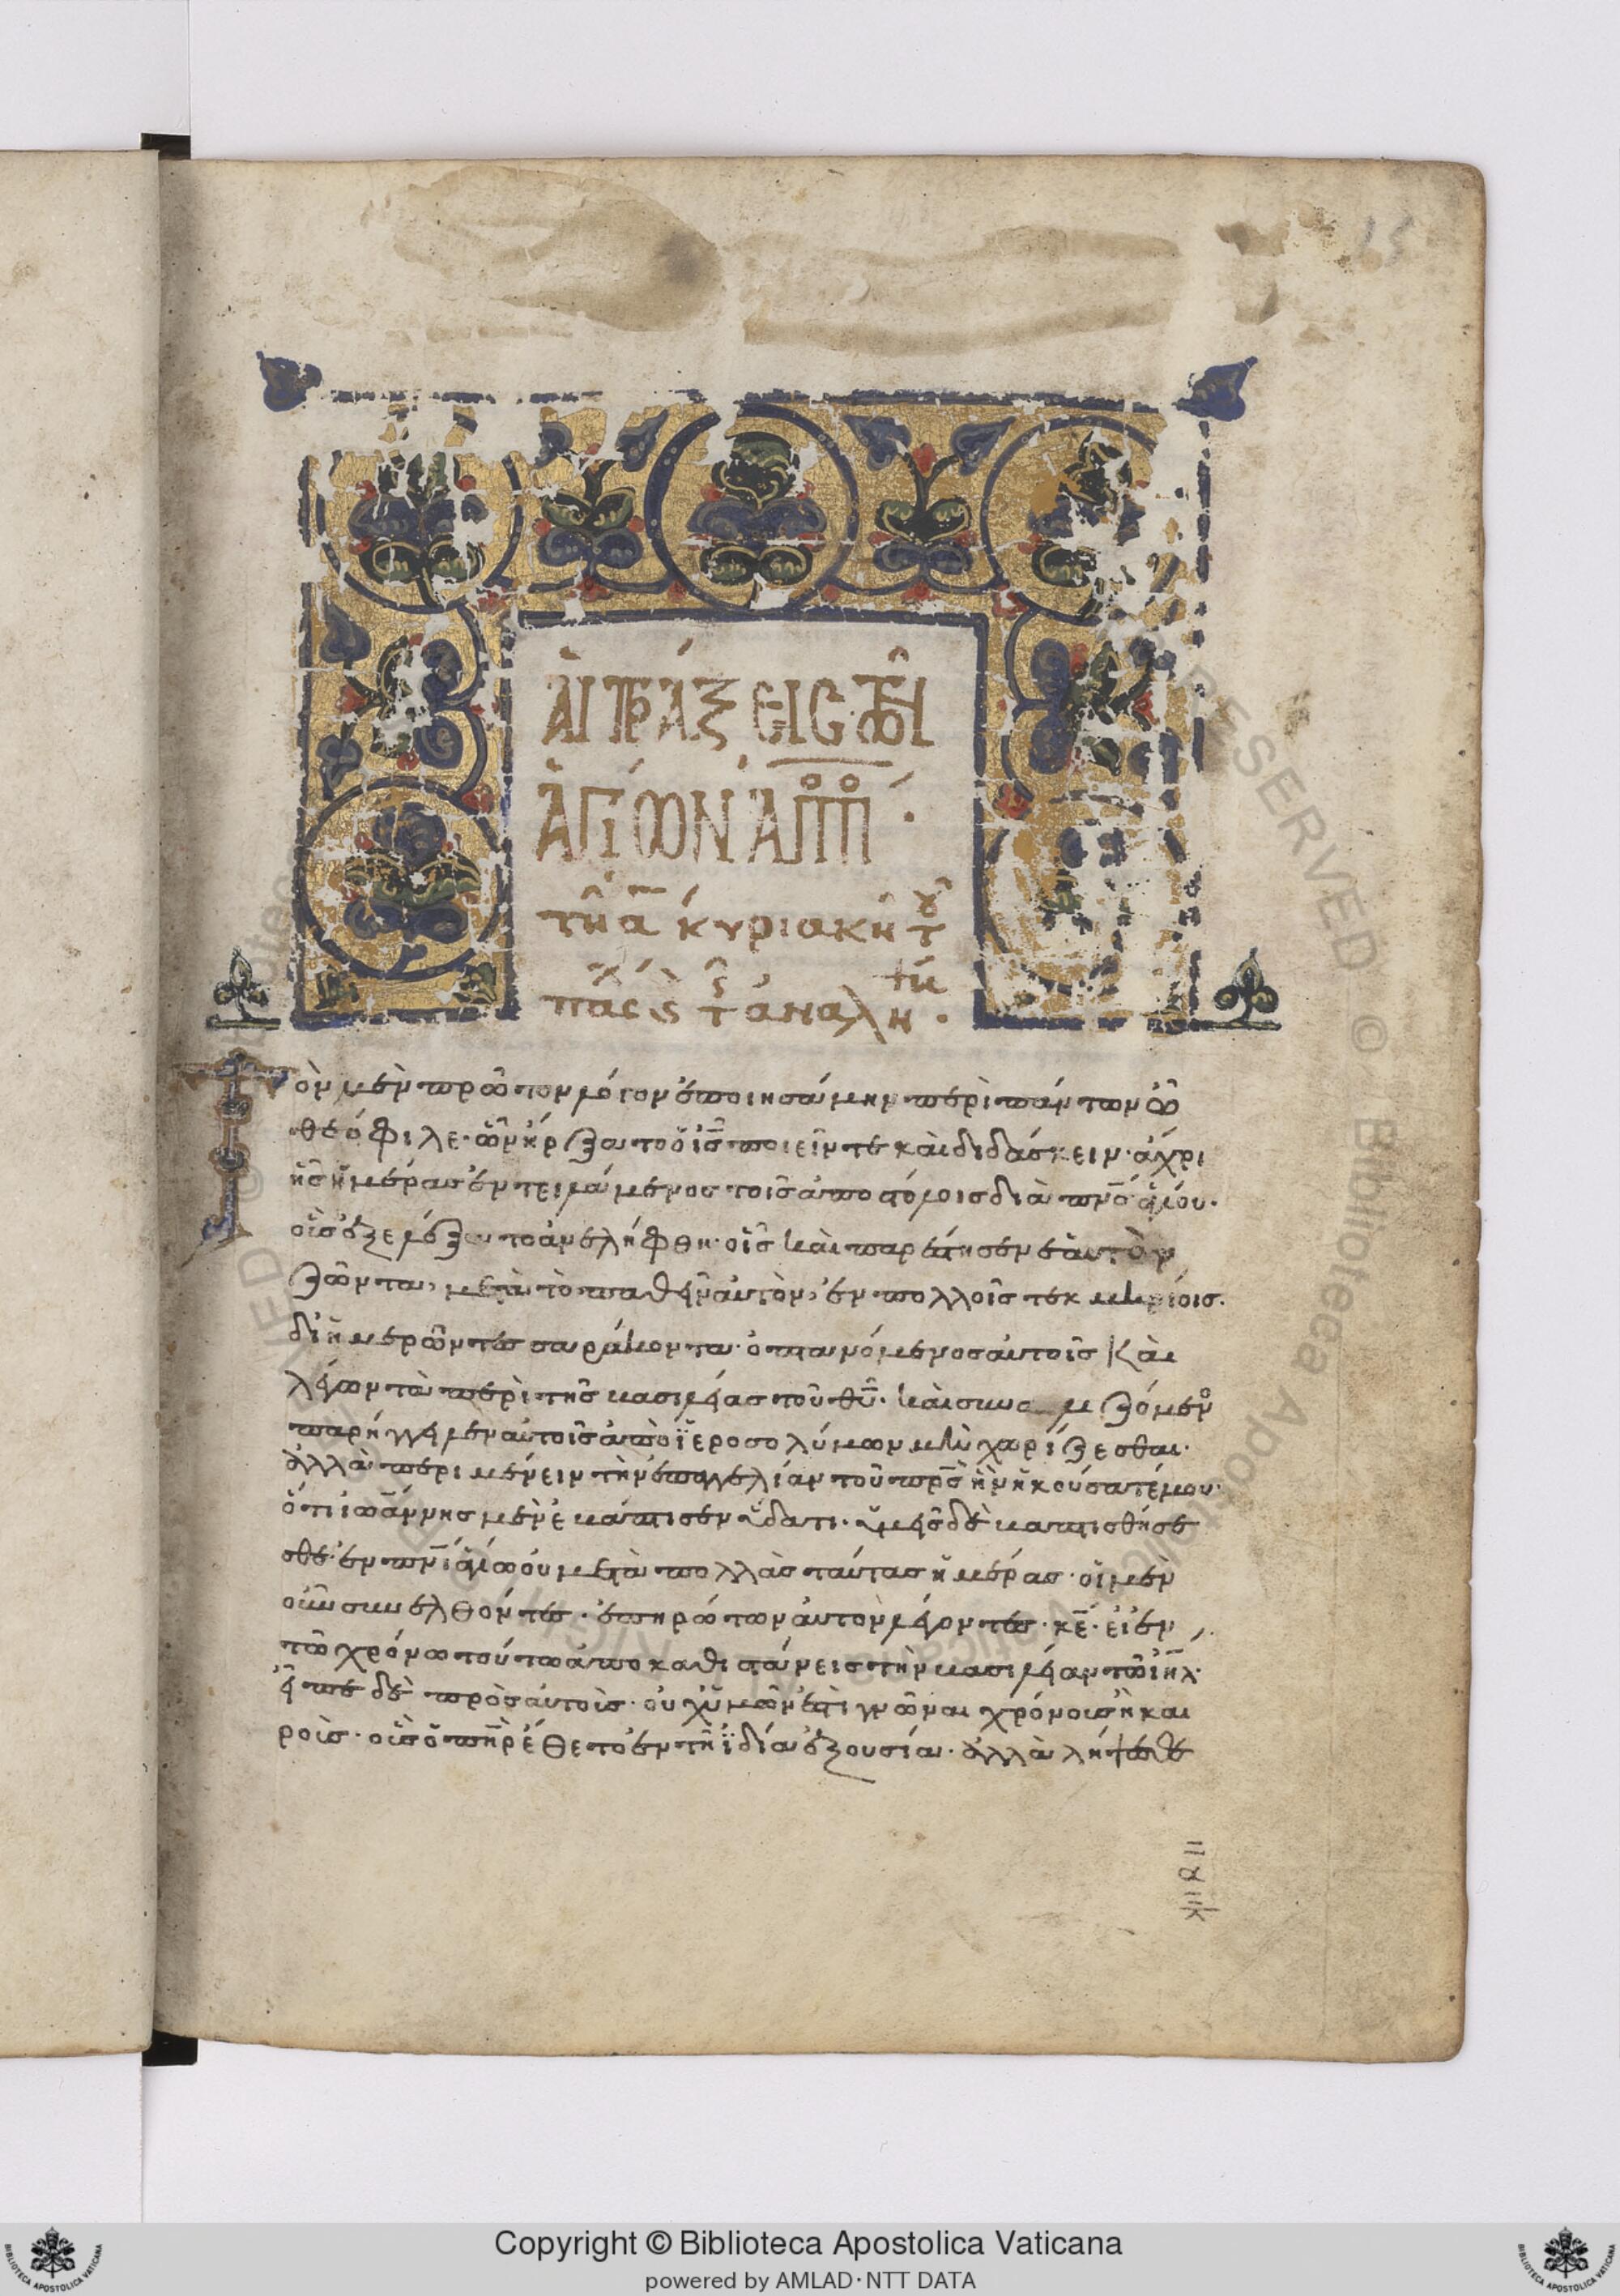 15
ΑἹ ΠΡΆΞΕΙΣ ΤῶΝ
ἉΓΊΩΝ ἈΠΠ·
τῆ α κυριακῆ τ
πάσ
τὸν μὲν πρῶτον λόγον ἐποιησάμην περὶ πάντων ὦ
θεόφιλε· ὧν ἤρξατο ὁ ις ποιεῖν τε καὶ διδάσκειν· ἄχρι
ἧς ἡμέρας ἐντειλάμενος τοῖς ἀποστόλοις διὰ πνς ἁγίου·
οὓς ἐξελέξατο ἀνελήφθη· οἷς καὶ παρέστησεν ἑαυτὸν
ζῶντα, μετὰ τὸ παθεῖν αὐτὸν, ἐν πολλοῖς τεκμηρίοις·
δι ἡμερῶν τεσσαράκοντα· ὀπτανόμενος αὐτοῖς καὶ
λέγων τὰ περὶ τῆς βασιλείας τοῦ θυ· καὶ συναλιζόμεν
παρήγγειλεν αὐτοῖς ἀπὸ ἱεροσολύμων μὴ χωρίζεσθαι·
ἀλλὰ περιμένειν τὴν ἐπαγγελίαν τοῦ πρς ἣν ἠκούσατέ μου·
ὅτι ἰωάννης μὲν ἐβάπτισεν ὕδατι· ὑμεῖς δὲ βαπτισθήσε
σθε· ἐν πνι ἁγίω οὐ μετὰ πολλὰς ταύτας ἡμέρας· οἱ μὲν
οὖν συνελθόντες· ἐπηρώτων αὐτὸν λέγοντες· κε· εἰ ἐν
τῶ χρόνω τούτω ἀποκαθιστάνεις τὴν βασιλείαν τῶ ιηλ·
εἶπε δὲ πρὸς αὐτοὺς· οὐχ ὑμῶν ἐστὶ γνῶναι χρόνους ἢ και
ροὺς· οὓς ὁ πηρ ἔθετο ἐν τῆ ἰδία ἐξουσία· ἀλλὰ λήψεσθε
Copyright © Biblioteca Apostolica Vaticana
powered by AMLAD·NTT DATA